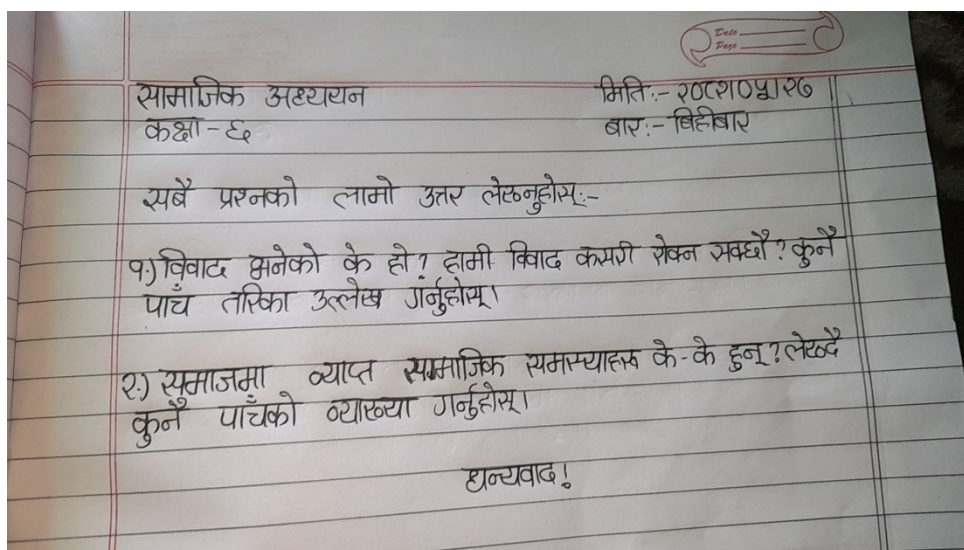 Date
Page
सामाजिक अध्ययन
मिति:- २०८१०५१२७
कक्षा - ६
बार:- बिहीबार
सबै प्रश्नको लामो उत्तर लेख्नुहोस्:-
१.) विवाद भनेको के हो? हामी विवाद कसरी रोक्न सक्छौ? कुनै
पाँच तरिका उल्लेख गर्नुहोस्।
२.) समाजमा व्याप्त सामाजिक समस्याहरू के-के हुन्? लेख्दै
कुनै पाँचको व्याख्या गर्नुहोस्।
धन्यवाद!